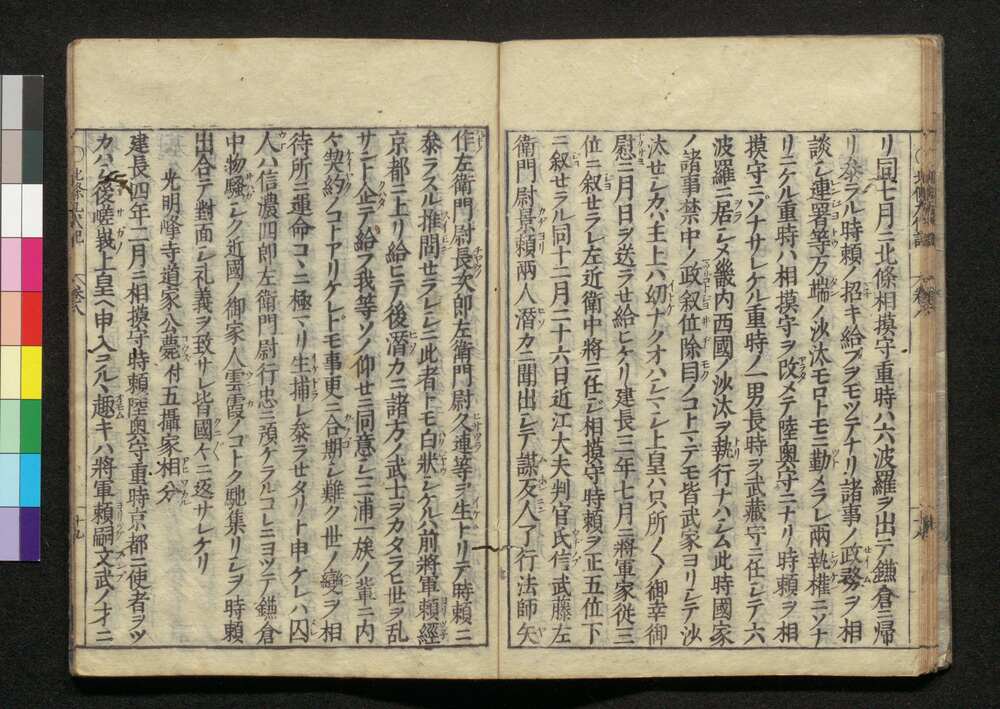 リ同七月ニ北條相摸守重時ハ六波羅ヲ出テ鎌倉ニ帰
リ参ラル時頼ノ招キ給フヲモツテナリ諸事ノ政務ヲ相
談シ連署等万端ノ沙汰モロトモニ勤メラレ両執權ニソナ
リニケル重時ハ相摸守ヲ改メテ陸奥守ニナリ時頼ヲ相
摸守ニゾナサレケル重時ノ一男長時ヲ武藏守ニ任シテ六
波羅ニ居シ畿内西國ノ沙汰ヲ執行ナハシム此時國家
ノ諸事禁中ノ政叙位除目ノコトマデモ皆武家ヨリシテ沙
汰セシカハ主上ハ幼ナクオハシマシ上皇六只所〱御幸御
慰ニ月日ヲ送ラセ給ヒケリ建長三年七月ニ將軍家従三
位ニ叙セラレ左近衛中將ニ任シ相摸守時頼ヲ正五位下
ニ叙セラル同十二月二十六日近江大夫判官氏信武藤左
衛門尉景頼兩人潜カニ聞出シテ謀反人了行法師矢
作左衛門尉長次郎左衛門尉久連等ヲ生トリテ時頼ニ
参ラスル推問セラレシニ此者トモ白狀シケルハ前將軍頼經
京都ニ上リ給ヒテ後潜カニ諸方ノ武士ヲカタラヒ世ヲ乱
サント企テ給フ我等ソノ仰セニ同意シ三浦一族ノ輩ニ内
々契約ノコトアリケレドモ事更ニ合期シ難ク世ノ變ヲ相
待所ニ運命コヽニ極マリ生捕レ参ラセタリト申ケレハ囚
人ハ信濃四郎左衛門尉行忠ニ預ケラルコレニヨツテ鎌倉
中物騒シク近國ノ御家人雲霞ノコトク馳集リシヲ時頼
出合テ對面シ礼義ヲ致サレ皆國々ニ返サレケリ
光明峰寺道家公薨付五攝家相分
建長四年二月ニ相摸守時頼陸奥守重時京都ニ使者ヲツ
カハシ後嵯峩上皇ヘ申入ラルヽ趣キハ將軍頼嗣文武ノ才ニ
北條六代記
卷八
十九